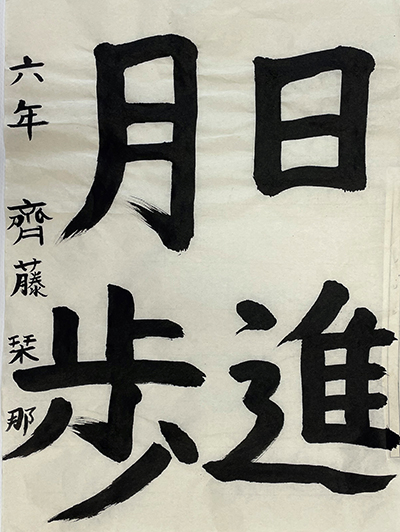 日進
月歩
六年 齊藤 栞那